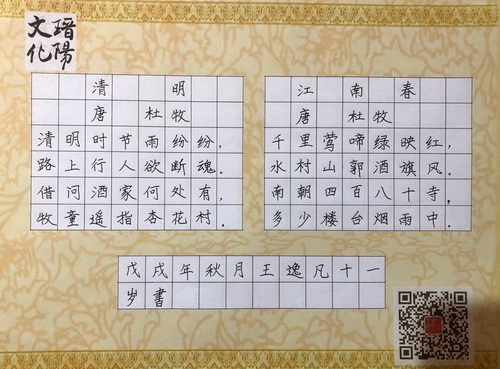 文化
清明
唐 杜牧
清明时节雨纷纷，
路上行人欲断魂。
借问酒家何处有，
牧童遥指杏花村。
江南春
唐 杜牧
千里莺啼绿映红，
水村山郭酒旗风。
南朝四百八十寺，
多少楼台烟雨中。
戊戌年秋月王逸凡十一
岁書